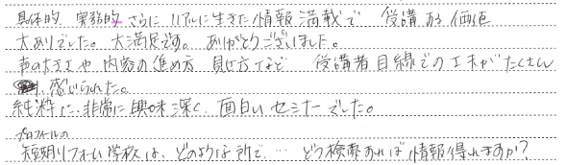 具体的 実務的 さらに リアルに生きた情報満載で 受講する価値
大ありでした。大満足です。ありがとうございました。
声の大きさや 内容の進め方 見せ方など 受講者目線での工夫がたくさん
感じられた。
純粋に、非常に興味深く、面白いセミナーでした。
プロフィールの
短期リフォーム学校は、どのような所で… どう検索すれば情報得れますか?